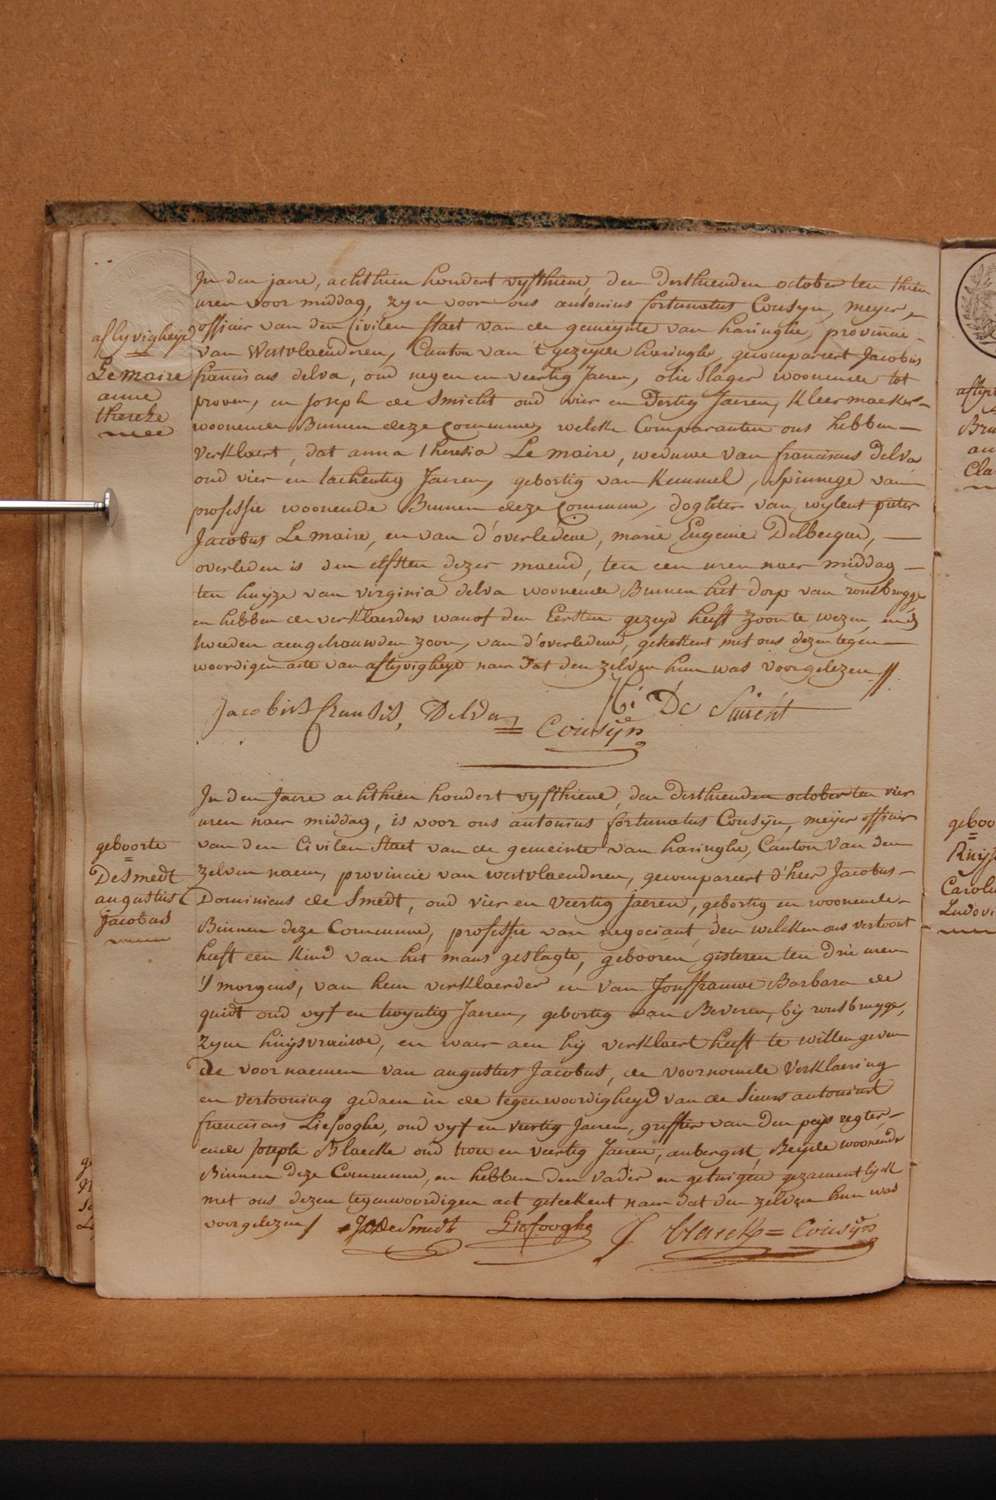 aflyvigheyd
Le Maire
anne
thereze
In den jare, achthien hondert vyfthiene, den derthienden october ten thien
uren voor middag, zyn voor ons antonius fortunatus Cousyn, meyer,
officier van den Civilen Staet van de gemeynte van haringhe, provincie
van Westvlaenderen, Canton van 't gezeyde haringhe, gecompareert Jacobus
franciscus delva, oud negen en veertig Jaeren, olie Slager woonende tot
proven, en Joseph de Smicht oud vier en Dertig Jaeren, Kleermaeker
woonende Binnen deze Commune, welke Comparanten ons hebben
verklaert, dat anna theresia Le maire, weduwe van franciscus delva
oud vier en tachentig Jaeren, gebortig van Kemmel, Spinnege van
professie woonende Binnen deze Commune, doghter van wylent pieter
Jacobus Le maire, en van d'overledene, marie Eugenie Delbecque,
overleden is den elfsten dezer maend, ten een uren naer middag
ten huyze van virginia delva woonende Binnen het dorp van rousbrugge
en hebben de verklaerders waeof den Eersten gezeyd heeft zoon te wezen, en d
tweeden aengehouwden zoon, van d'overledene, geteekent met ons dezen tegen
woordigen acte van aflyvigheyd naer dat den zelven hun was voorgelezen //
Jacobus Fransis, Delva J: De Smicht
Cousÿn
geboorte
De Smedt
augustus
jacobus
In den Jaere achthien hondert vyfthiene, den derthienden october ten vier
uren naer middag, is voor ons antonius fortunatus Cousyn, meyer officier
van den Civilen Staet van de gemeinte van haringhe, Canton van den
zelven naem, provincie van westvlaenderen, gecompareert d'heer Jacobus
Dominicus de Smedt, oud vier en veertig Jaeren, gebortig en woonende
Binnen deze Commune, professie van negociant, den welken ons vertoont
heeft een kind van het mans geslagte, gebooren gisteren ten drie uren
S'morgens, van hem verklaerder en van Jouffrauwe Barbara de
quidt oud vyf en twyntig Jaeren, gebortig van Beveren, bij rousbrugge,
zyne huijsvrauwe, en waer aen hij verklaert heeft te willen geven
de voornaemen van augustus Jacobus, de voornomde Verklaering
en vertooning gedaen in de tegenwoordigheyd van de Sieurs antonius
franciscus Liefooghe, oud vyf en veertig Jaeren, griffier van den peys regter,
ende Joseph Blaecke oud trou en veertig Jaeren, aubergist, Beijde woonende
Binnen deze Commune, en hebben den vader en getuigen gezaementlijk
met ons dezen tegenwoordigen act geteekent naer dat den zelven hun was
voorgelezen / JDDeSmedt Liefooghe J Blaecke = Cousÿn
geboo
Ruijss
Carolu
Ludovi